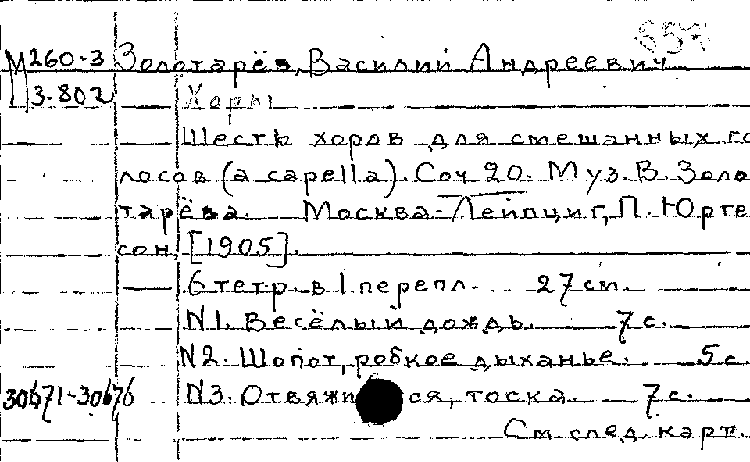 657
М 260-3 Золотарёв, Василий Андреевич
З-802 Хоры
Шесть хоров для смешанных го
лосов (a capella). Соч 20. Муз. В. Золо
тарёва. Москва-Лейпциг, П. Юрген
сон, [1905].
6 тетр. в 1 перепл. 27 см.
N1. Весёлый дождь. 7 с.
N2. Шопот, робкое дыханье. 5 с
30671-30676 N3. Отвяжи ся, тоска. 7 с.
См. след. карт.